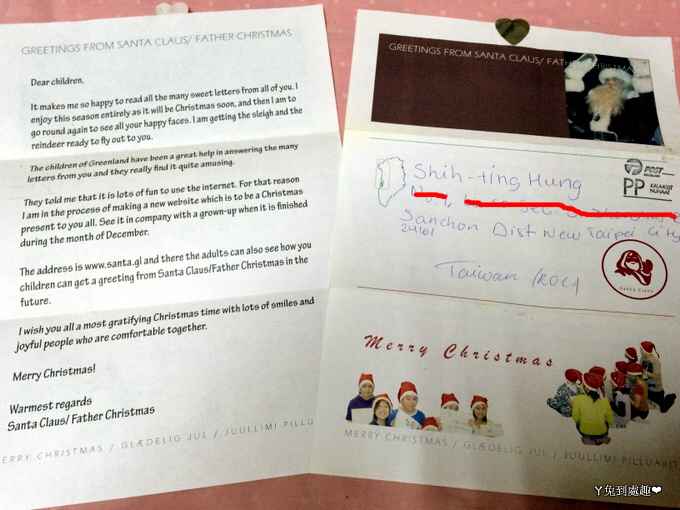 GREETINGS FROM SANTA CLAUS/ FATHER CHRISTMAS
Dear children,
It makes me so happy to read all the many sweet letters from all of you. I
enjoy this season entirely as it will be Christmas soon, and then I am to
go round again to see all your happy faces. I am getting the sleigh and the
reindeer ready to fly out to you.
The children of Greenland have been a great help in answering the many
letters from you and they really find it quite amusing.
They told me that it is lots of fun to use the internet. For that reason
I am in the process of making a new website which is to be a Christmas
present to you all. See it in company with a grown-up when it is finished
during the month of December.
The address is www.santa.gl and there the adults can also see how you
children can get a greeting from Santa Claus/Father Christmas in the
future.
I wish you all a most gratifying Christmas time with lots of smiles and
joyful people who are comfortable together.
Merry Christmas!
Warmest regards
Santa Claus/ Father Christmas
ERRY CHRISTMAS / GLÆDELIG JUL / JUULLIMI PILLU
GREETINGS FROM SANTA CLAUS/ FATHER CHRISTMAS
POST
PP
KALAALLIT
NUNAAT
Shih-ting Hung
Sanchon Dist New Taipei City
24161
Taiwan (ROC)
Santa Claus
Merry Christmas
MERRY CHRISTMAS / GLÆDELIG JUL / JUULLIMI PILLUARIT
Y兔到處趣❤